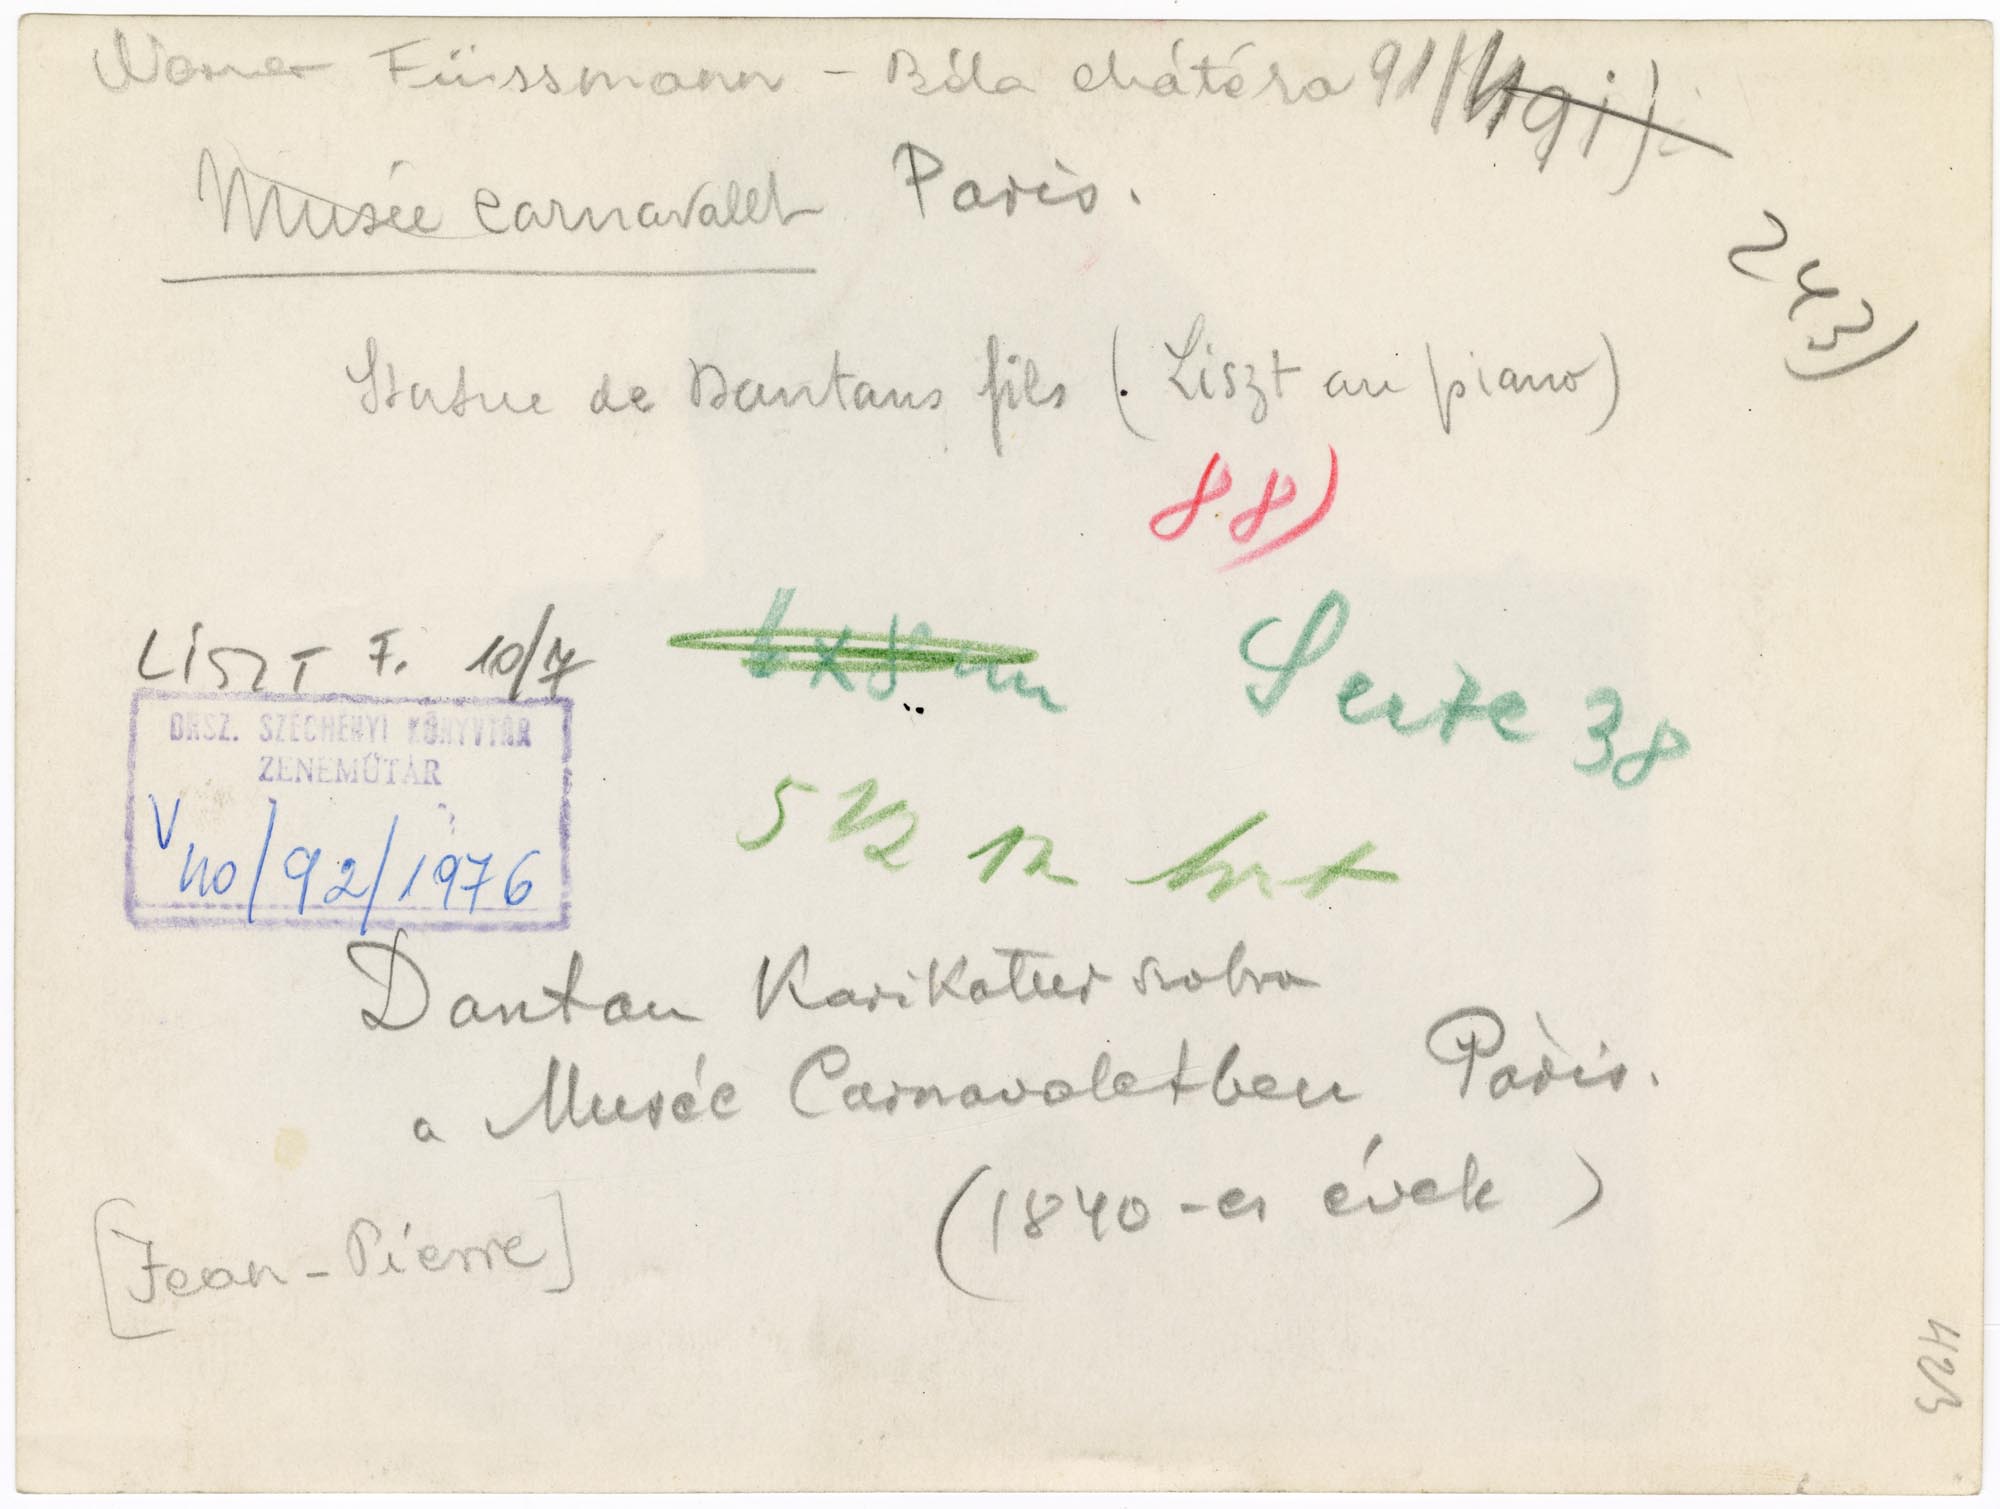 Werner Füssmann - Béla Mátéra 91/
Musée Carnavalet Paris.
243)
Statue de Dantans fils (Liszt au piano)
88)
LISZT F. 10/7
Seite 38
ORSZ. SZÉCHÉNYI KÖNYVTÁR
ZENEMŰTÁR
V 110/92/1976
5 1/2
Dantan Karikatur szobra
a Musée Carnavaletben Páris.
(1840-es évek)
[Jean-Pierre]
423